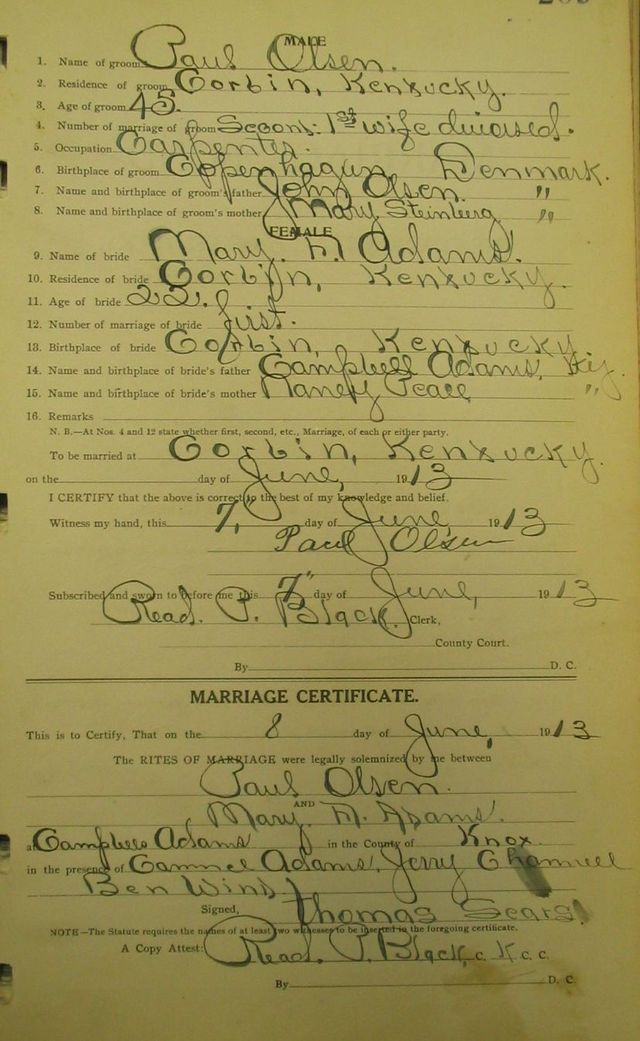 MALE
1. Name of groom Paul Olsen.
2. Residence of groom Corbin, Kentucky.
3. Age of groom 45.
4. Number of marriage of groom Second. 1st wife
5. Occupation Carpenter.
6. Birthplace of groom Coppenhagun, Denmark.
7. Name and birthplace of groom's father John Olsen. "
8. Name and birthplace of groom's mother Mary Steinberg "
FEMALE
9. Name of bride Mary. M. Adams.
10. Residence of bride Corbin, Kentucky.
11. Age of bride 22.
12. Number of marriage of bride first.
13. Birthplace of bride Corbin, Kentucky.
14. Name and birthplace of bride's father Campbell Adams, Ky.
15. Name and birthplace of bride's mother "
16. Remarks
N. B.—At Nos. 4 and 12 state whether first, second, etc., Marriage, of each or either party.
To be married at Corbin, Kentucky.
on the day of June, 1913
I CERTIFY that the above is correct to the best of my knowledge and belief.
Witness my hand, this 7, day of June, 1913
Paul Olsen
Subscribed and sworn to before me this 7" day of June, 1913
Read. P. Black. Clerk,
County Court.
By D. C.
MARRIAGE CERTIFICATE.
This is to Certify, That on the 8 day of June, 1913
The RITES OF MARRIAGE were legally solemnized by me between
Paul Olsen.
AND
Mary. M. Adams.
at Campbell Adams in the County of Knox.
in the presence of Adams, Jerry
Ben
Signed, Thomas Sears.
NOTE—The Statute requires the names of at least two witnesses to be inserted in the foregoing certificate.
A Copy Attest: Read. P. Black, C. K. C. C.
By D. C.